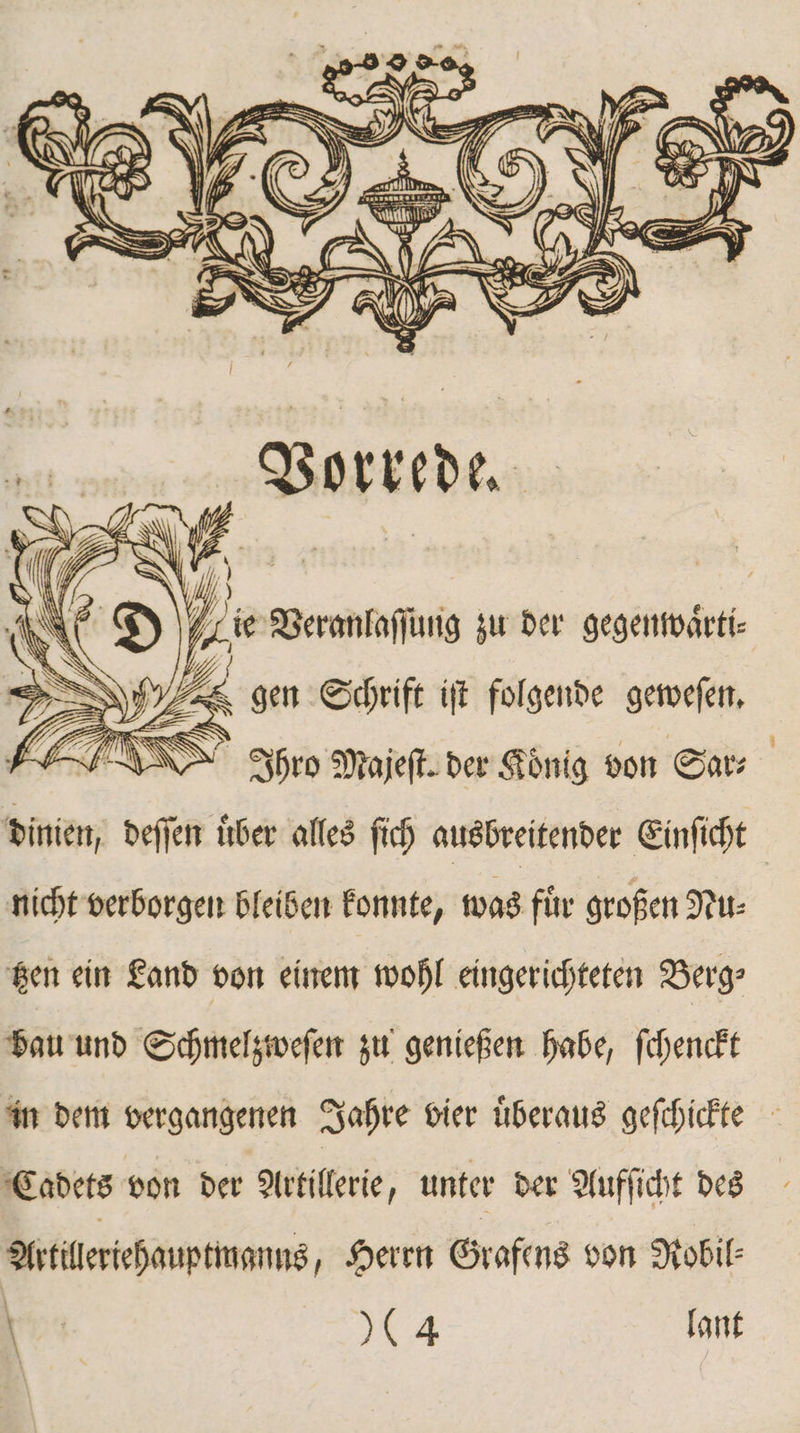 Vorrede.
Die Veranlaſſung zu der gegenwaͤrti-
gen Schrift iſt folgende geweſen.
Ihro Majeſt. der Koͤnig von Sar-
dinien, deſſen uͤber alles ſich ausbreitender Einſicht
nicht verborgen bleiben konnte, was fuͤr großen Nu-
tzen ein Land von einem wohl eingerichteten Berg-
bau und Schmelzweſen zu genießen habe, ſchenckt
in dem vergangenen Jahre vier uͤberaus geſchickte
Cadets von der Artillerie, unter der Aufſicht des
Artilleriehauptmanns, Herrn Grafens von Robil-
)( 4 lant